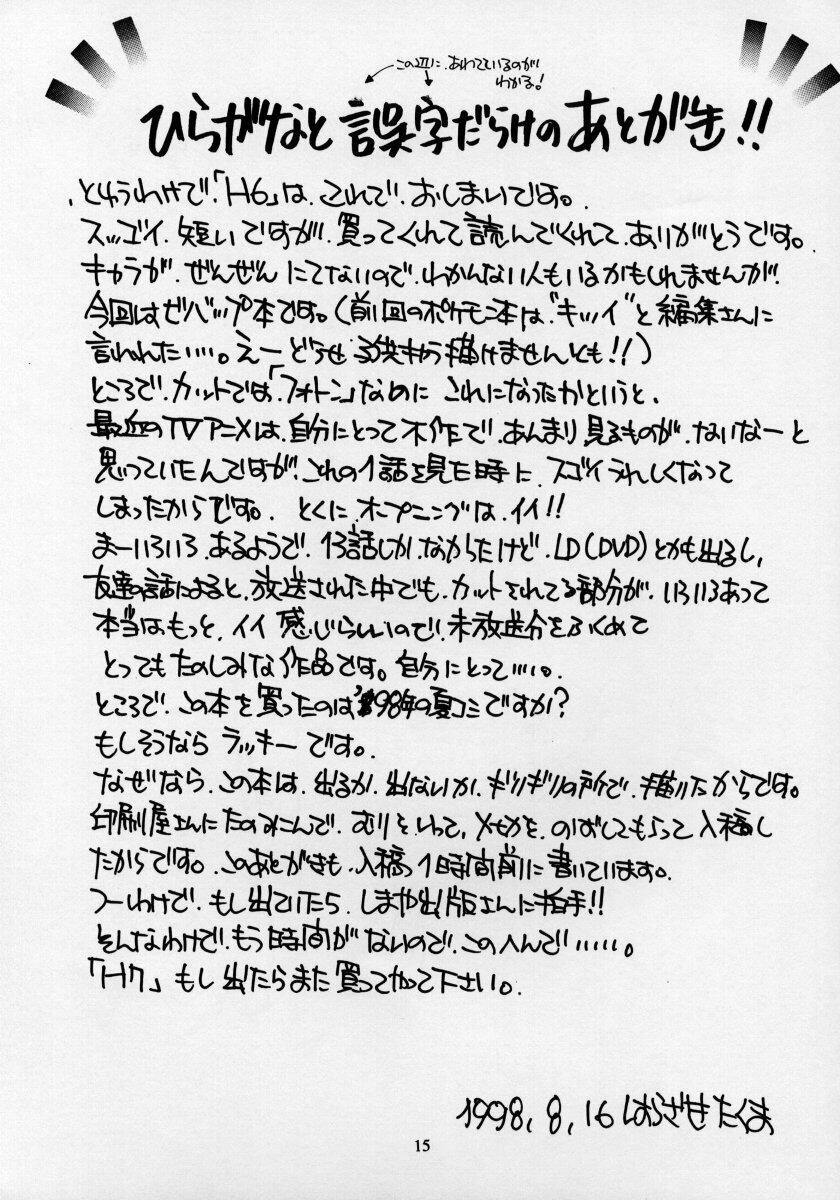 この辺に、あわてているのが
わかる!
ひらがなと誤字だらけのあとがき!!
、とゆうわけで、「H6」は、これで、おしまいです。
スッゴイ、短いですが、買ってくれて読んでくれて、ありがとうです。
キャラが、ぜんぜんにてないので、わかんない人もいるかもしれませんが、
今回はゼバップ本です。(前回のポケモン本は、"キツイ"と編集さんに
言われた….。えーどうせ子供きり描けませんとも!!)
ところで、カットでは、「フォトン」なのに これになったかというと、
最近のTVアニメは、自分にとって不作で、あんまり見るものが、ないなーと
思っていたんですが、これの1話を見た時に、スゴイうれしくなって
しまったからです。とくに、オープニングは、イイ!!
まーいろいろ、あるようで、13話しか、なかったけど、LD(DVD)とかも出るし、
友達の話によると、放送された中でも、カットされてる部分が、いろいろあって
本当は、もっと、イイ 感じらしいので、未放送分をふくめて
とってもたのしみな作品です。自分にとって….。
ところで、この本を買ったのは'98年の夏コミですか?
もしそうなら ラッキーです。
なぜなら、この本は、出るか、出ないか、ギリギリの所で、描いたからです。
印刷屋さんにたのみこんで、むりをいって、〆切を、のばしてもらって入稿し
たからです。このあとがきも、入稿1時間前に書いています。
つーわけで、もし出ていたら、しまや出版さんに拍手!!
そんなわけで、もう時間がないので、このへんで…..。
「H7」もし出たらまた買ってやって下さい。
1998,8,16 はらざきたくま
15